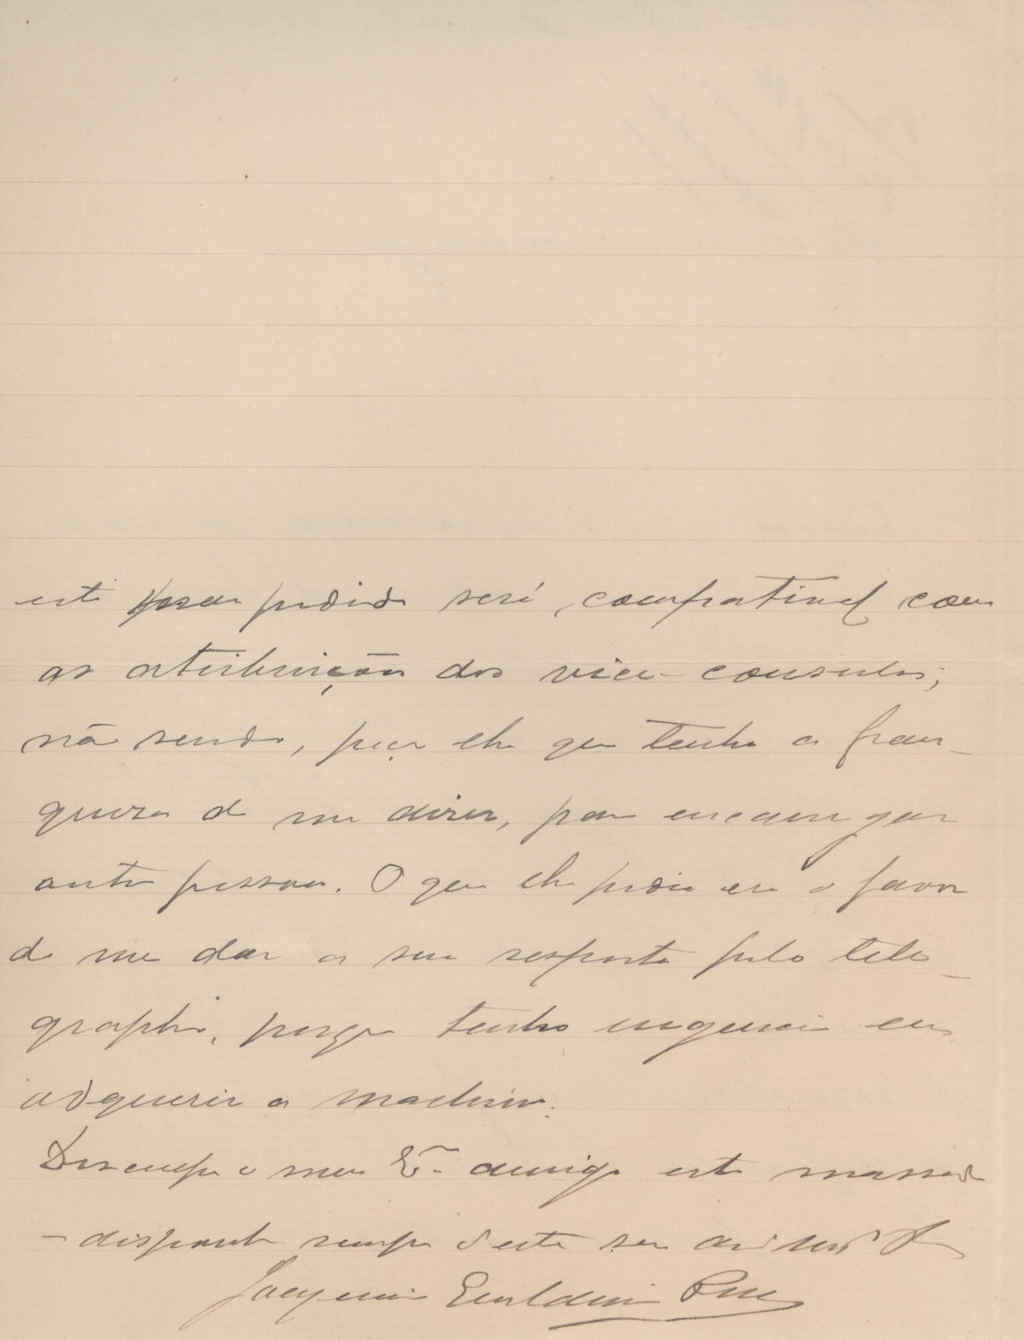 este pedido será compativel com
as attribuições dos vice-consules;
não sendo, peço lhe que tenha a fran-
queza de me dizer, para encarregar
outra pessoa. O que lhe pedia era o favor
de me dar a sua resposta pelo tele-
grapho, porque tenho urgencia em
adquerir a machina.
Desculpe o meu Exº amigo esta massada
- disponha sempre d'este seu
Joaquim